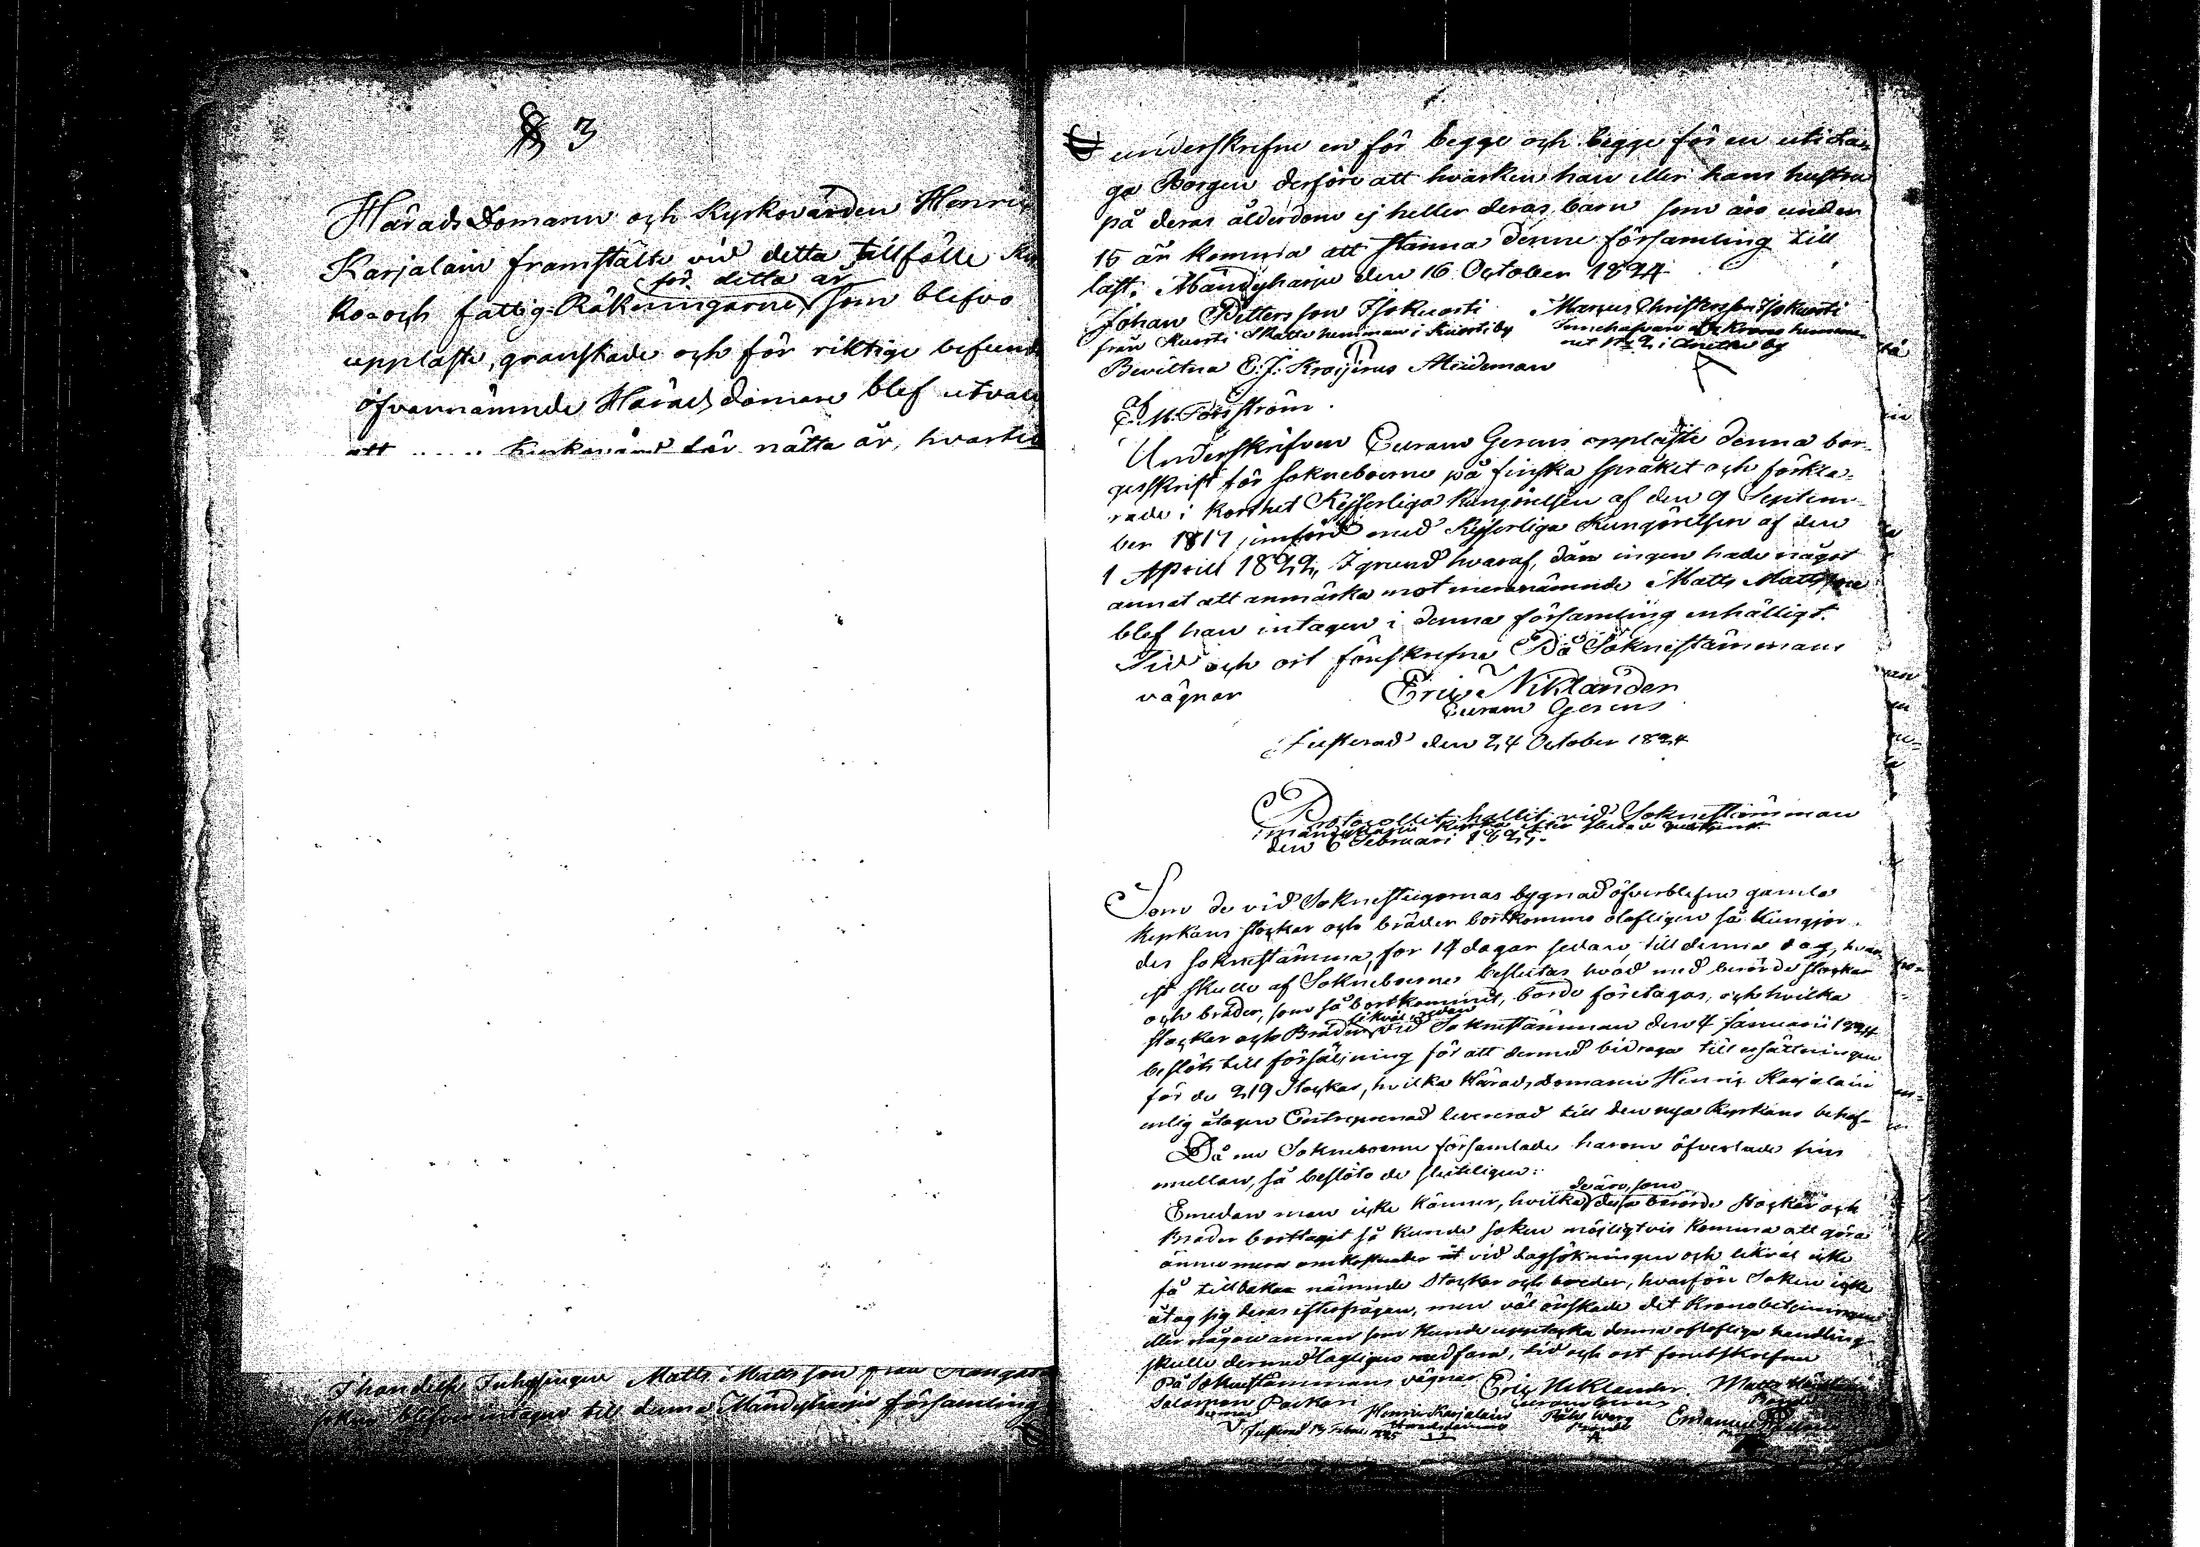 § 3
HäradsDomaren och Kyrkovärden Henric
Karjalain framstälte vid detta tillfälle Kyr
för detta år
ko- och fattig-Räkningarne som blefvo
uppläste, granskade och för riktige befundne
öfvannämnde Häradsdomare blef utvald
att Kyrkovärd för nätta år, hvartil
Matts Mattsson från
till denna Mändyharju församling
underskrefne en för begge och begge för en uti La-
ga Borgen derföre att hvarken han eller hans hustru
på deras ålderdom ej heller deras barn som äro under
15 år komma att stanna denne församling till
last. Mändyharju den 16 October 1824
Johan Pettersson Isokuorti Marcus Christersson Isokuorti
från Kuorti Skatte hemman i Kuortiby
Bevittna E. J. Kroijerus Mideman
af
E. M. Forsström.
Underskrifven Curam Gerens uppläste denna bor-
gesskrift för sokneboerne på finska språket och förkla-
rade i korthet Kejserliga Kungörelsen af den 9 Septem-
ber 1817 jemförd med Kejserliga Kungörelsen af den
1 Aprill 1822, I grund hvaraf, dån ingen hade något
annat att anmärka mot mernämnde Matts Mattsson
blef han intagen i denna församling enhälligt.
Tid och ort förrskrefne På Soknestämmans
vägnar Eric Niklander
Curam Gerens
Justerad den 24 October 1824
Protocollet hållit vid Soknestämman
i Mändyharju Kyrka efter slutad gudstjenst
den 6 Februari 1825.
Som de vid Soknestugornas bygnad öfverblefne gamla
kyrkans stockar och bräder bortkommo olofligen så kungjor-
des soknestämma, för 14 dagar sedan, till denna dag, hvar
est skulle af Sokneboerne beslutas hvad med berörde stockar
och bräder, som så bortkommit, borde företagas, och hvilka
likväl redan
stockar och Bräder vid Soknestämman den 4 Januarii 1824
beslöts till försäljning för att dermed bidraga till ersättningen
för de 219 Stockar, hvilka Häradsdomaren Henric Karjalain
enlig åtagen Entreprenad levererad till den nya Kyrkans behof-
Då nu Sokneboerne församlade härom öfverlade sins
emellan, så beslöto de sluteligen:
de äro, som
Emedan man icke känner, hvilka dessa berörde stockar och
Bräder borttagit så kunde soken möjligtvis komma att göra
ännu mera omkostnader vid lagsökningen och likväl icke
få tillbaka nämnde Stockar och breder, hvarföre Soken icke
åtog sig deras efterfrågan, men väl önskade det Kronobetjeningen
eller någon annan som kunde upptäcka denna olofliga handling
skulle dermed lagligen medfara, tid och ort förutskrefne
På Soknestämmans vägnar Eric Niklander Matts
Salomon Parkon Curam Gerens
Henric Karjalain Emanuel
Häradsdomare
Justerad 13 Febr. 1825